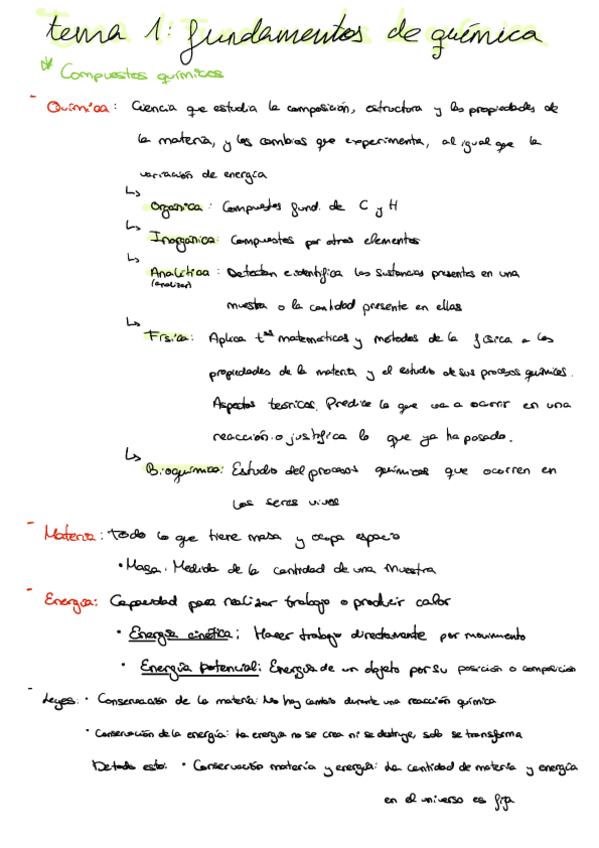 tema 1: fundamentos de química
Compuestos químicos
- Química: Ciencia que estudia la composición, estructura y las propiedades de
la materia, y los cambios que experimenta, al igual que la
variación de energía
↳ Orgánica: Compuestos fund. de C y H
↳ Inorgánica: Compuestos por otros elementos
↳ Analítica: Detectan e identifica las sustancias presentes en una
(analizar)
muestra o la cantidad presente en ellas
↳ Física: Aplica tªˢ matemáticas y métodos de la física a las
propiedades de la materia y el estudio de sus procesos químicos.
Aspectos teóricos. Predice lo que va a ocurrir en una
reacción o justifica lo que ya ha pasado.
↳ Bioquímica: Estudio del procesos químicos que ocurren en
los seres vivos
- Materia: Todo lo que tiene masa y ocupa espacio
• Masa: Medida de la cantidad de una muestra
- Energía: Capacidad para realizar trabajo o producir calor
• Energía cinética: Hacer trabajo directamente por movimiento
• Energía potencial: Energía de un objeto por su posición o composición
- Leyes: • Conservación de la materia: No hay cambio durante una reacción química
• Conservación de la energía: La energía no se crea ni se destruye, solo se transforma
De todo esto: • Conservación materia y energía: La cantidad de materia y energía
en el universo es fija